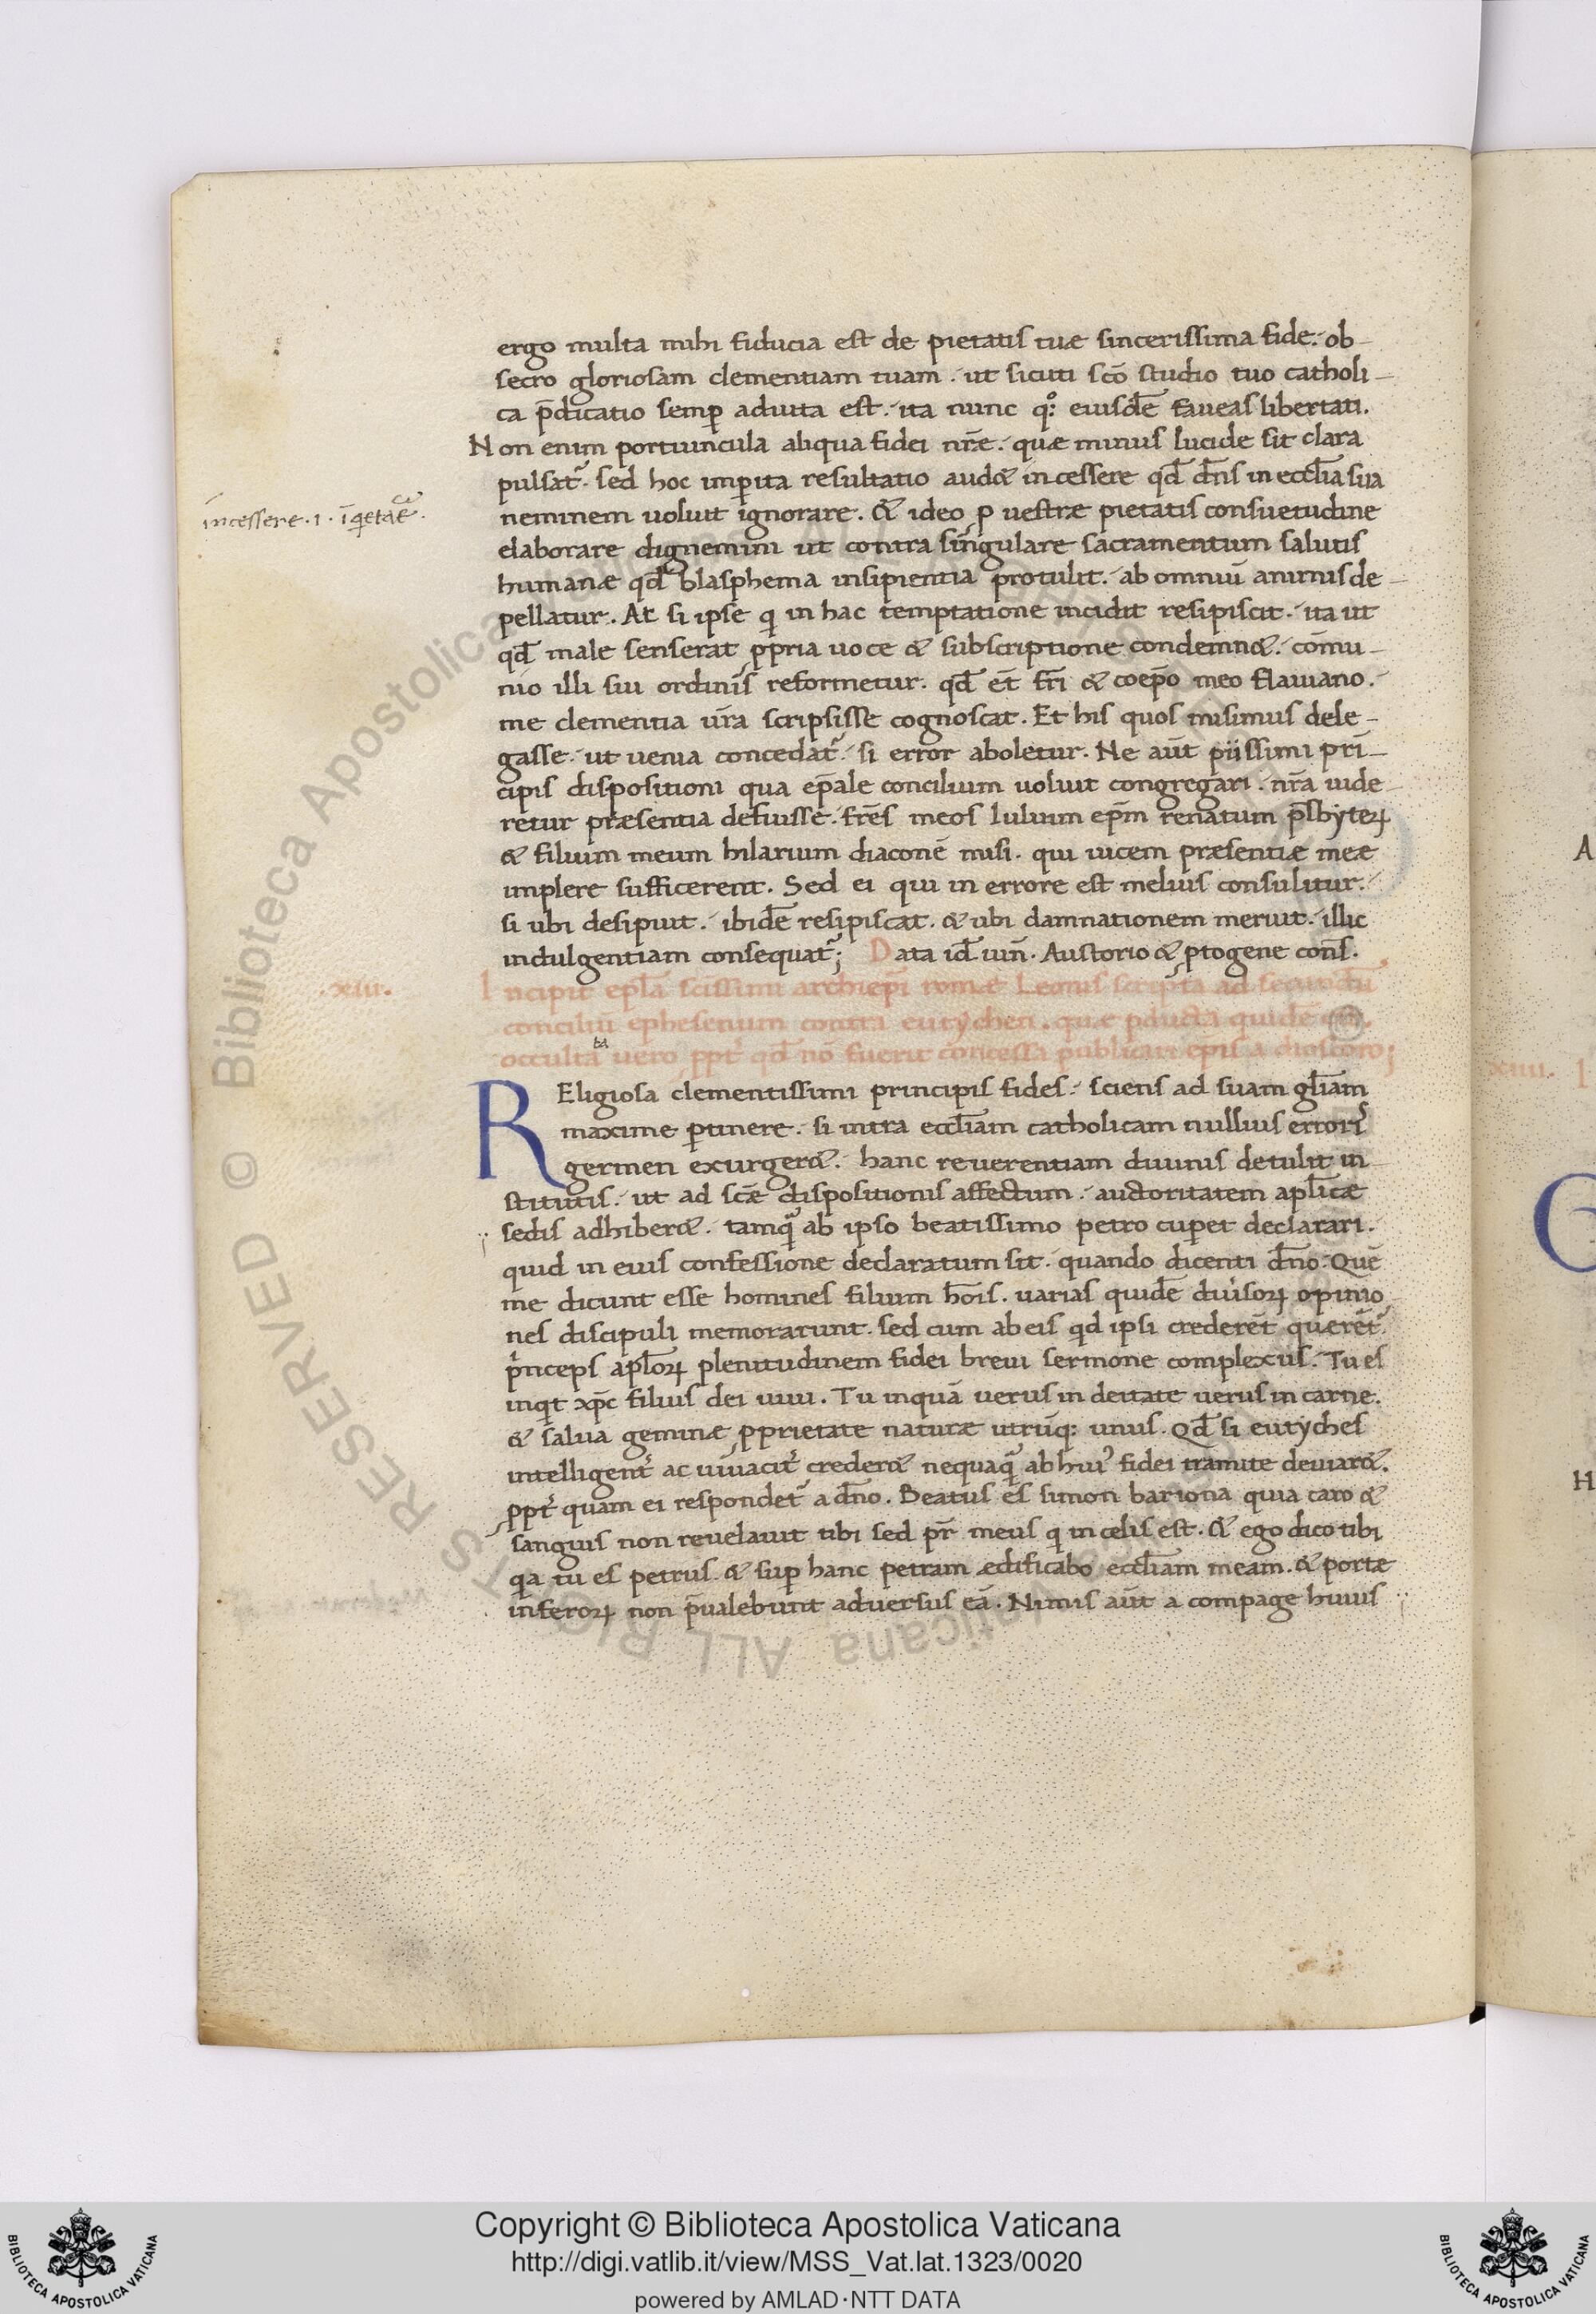 ergo multa mihi fiducia est de pietatis tuæ sincerissima fide. ob-
secro gloriosam clementiam tuam. ut sicuti sc̄o studio tuo catholi-
ca p̄dicatio semꝑ adiuta est. ita nunc qꝫ eiusdē faueas libertati.
Non enim portiuncula aliqua fidei nr̄æ. quæ minus lucide sit clara
pulsat᷑. sed hoc imꝑita resultatio aud& incessere qd̄ dn̄s in eccl̄ia sua
incessere .i. īq̄etaĉe.
neminem uoluit ignorare. & ideo ꝓ uestræ pietatis consuetudine
elaborare dignemini ut contra singulare sacramentum salutis
humanæ qd̄ blasphema insipientia protulit. ab omniū animis de-
pellatur. At si ipse q in hac temptatione incidit resipiscit. ita ut
qd̄ male senserat ꝓpria uoce & subscriptione condemn&. cōmu-
nio illi sui ordinis reformetur. qd̄ et̄ fr̄i & coep̄o meo flauiano.
me clementia ur̄a scripsisse cognoscat. Et his quos misimus dele-
gasse. ut uenia concedat᷑. si error aboletur. Ne aut̄ piissimi prī-
cipis dispositioni qua ep̄ale concilium uoluit congregari. nr̄a uide-
retur præsentia defuisse. fr̄es meos Iulium ep̄m renatum p̄sbyteꝝ
& filium meum hilarium diaconē misi. qui uicem præsentiæ meæ
implere sufficerent. Sed ei qui in errore est melius consulitur.
si ubi desipuit. ibidē resipiscat. & ubi damnationem meruit. illic
indulgentiam consequat᷑; Data id̄ iun̄. Austorio & ꝓtogene con̄s.
.xiii. Incipit ep̄la sc̄issimi archiep̄i romæ Leonis scripta ad secundū
conciliū ephesenum contra eutychen. quæ ꝓducta quidē est.
occulta ta uero ꝓpt᷑ qd̄ nō fuerit concessa publicari ep̄is a dioscoro;
REligiosa clementissimi principis fides. sciens ad suam gl̄iam
maxime ꝑtinere. si intra eccl̄iam catholicam nullius erroris
germen exurger&. hanc reuerentiam diuinis detulit in-
stitutis. ut ad sc̄æ dispositionis affectum. auctoritatem apl̄icæ
sedis adhiber&. tamq̄ ab ipso beatissimo petro cuꝑet declarari.
quid in eius confessione declaratum sit. quando dicenti dn̄o. Quē
me dicunt esse homines filium hōis. uarias quidē diuisoꝝ opinio-
nes discipuli memorarunt. sed cum ab eis qd ipsi crederēt querēt᷑.
p̄nceps apl̄oꝝ plenitudinem fidei breui sermone complexus. Tu es
inqt xp̄c filius dei uiui. Tu inquā uerus in deitate uerus in carne.
& salua geminæ ꝓprietate naturæ utrūqꝫ unus. Qd̄ si eutyches
intelligent᷑ ac uiuacit᷑ creder& nequaq̄ ab hui᷒ fidei tramite deuiar&.
ꝓpt᷑ quam ei respondet᷑ a dn̄o. Beatus es simon bariona quia caro &
sanguis non reuelauit tibi sed pr̄ meus q in celis est. & ego dico tibi
qa tu es petrus. & suꝑ hanc petram ædificabo eccl̄iam meam. & portæ
inferoꝝ non p̄ualebunt aduersus eā. Nimis aut̄ a compage huius
A
xiiii. I
G
H
Copyright © Biblioteca Apostolica Vaticana
http://digi.vatlib.it/view/MSS_Vat.lat.1323/0020
powered by AMLAD·NTT DATA
BIBLIOTECA APOSTOLICA VATICANA
BIBLIOTECA APOSTOLICA VATICANA